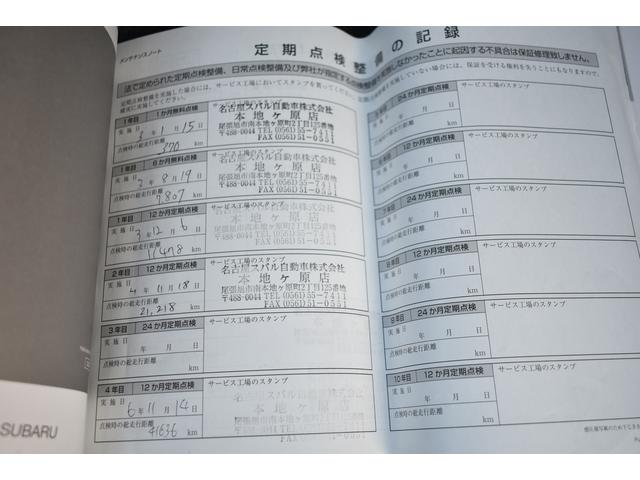 メンテナンスノート
定期点検整備の記録
法で定められた定期点検整備、日常点検整備及び弊社が指定する点検整備を実施しなかったことに起因する不具合は保証修理致しません。
定期点検整備を実施した場合には、サービス工場においてスタンプを貰ってください。定期点検整備を実施していない場合には、保証を受ける権利を失うことにもなりますので、
確実に実施してください。
1年目 1か月無料点検 サービス工場のスタンプ
実施日 3年 1月 15日
点検時の総走行距離
370 km
名古屋スバル自動車株式会社
本地ヶ原店
尾張旭市南本地ヶ原町2丁目125番地
〒488-0044 TEL (0561) 55-7411
FAX (0561) 51-0551
1年目 6か月無料点検 サービス工場のスタンプ
実施日 8月 19日
点検時の総走行距離
7,807 km
名古屋スバル自動車株式会社
本地ヶ原店
尾張旭市南本地ヶ原町2丁目125番地
〒488-0044 TEL (0561) 55-7411
FAX (0561) 51-0551
1年目 12か月定期点検 サービス工場のスタンプ
実施日 3年 12月 6日
点検時の総走行距離
11478 km
本地ヶ原店
2年目 12か月定期点検 サービス工場のスタンプ
実施日 4年 11月 18日
点検時の総走行距離
21,218 km
名古屋スバル自動車株式会社
本地ヶ原店
尾張旭市南本地ヶ原町2丁目125番地
〒488-0044 TEL (0561) 55-7411
FAX (0561) 51-0551
3年目 24か月定期点検 サービス工場のスタンプ
実施日 年 月 日
点検時の総走行距離
km
4年目 12か月定期点検 サービス工場のスタンプ
実施日 6年 11月 14日
点検時の総走行距離
41636 km
本地ヶ原店
24か月定期点検 サービス工場のスタンプ
実施日 年 月 日
点検時の総走行距離
km
12か月定期点検 サービス工場のスタンプ
実施日 年 月 日
点検時の総走行距離
km
24か月定期点検 サービス工場のスタンプ
実施日 年 月 日
点検時の総走行距離
km
8年目 12か月定期点検 サービス工場のスタンプ
実施日 年 月 日
点検時の総走行距離
km
9年目 24か月定期点検 サービス工場のスタンプ
実施日 年 月 日
点検時の総走行距離
km
10年目 12か月定期点検 サービス工場のスタンプ
実施日 年 月 日
点検時の総走行距離
km
SUBARU